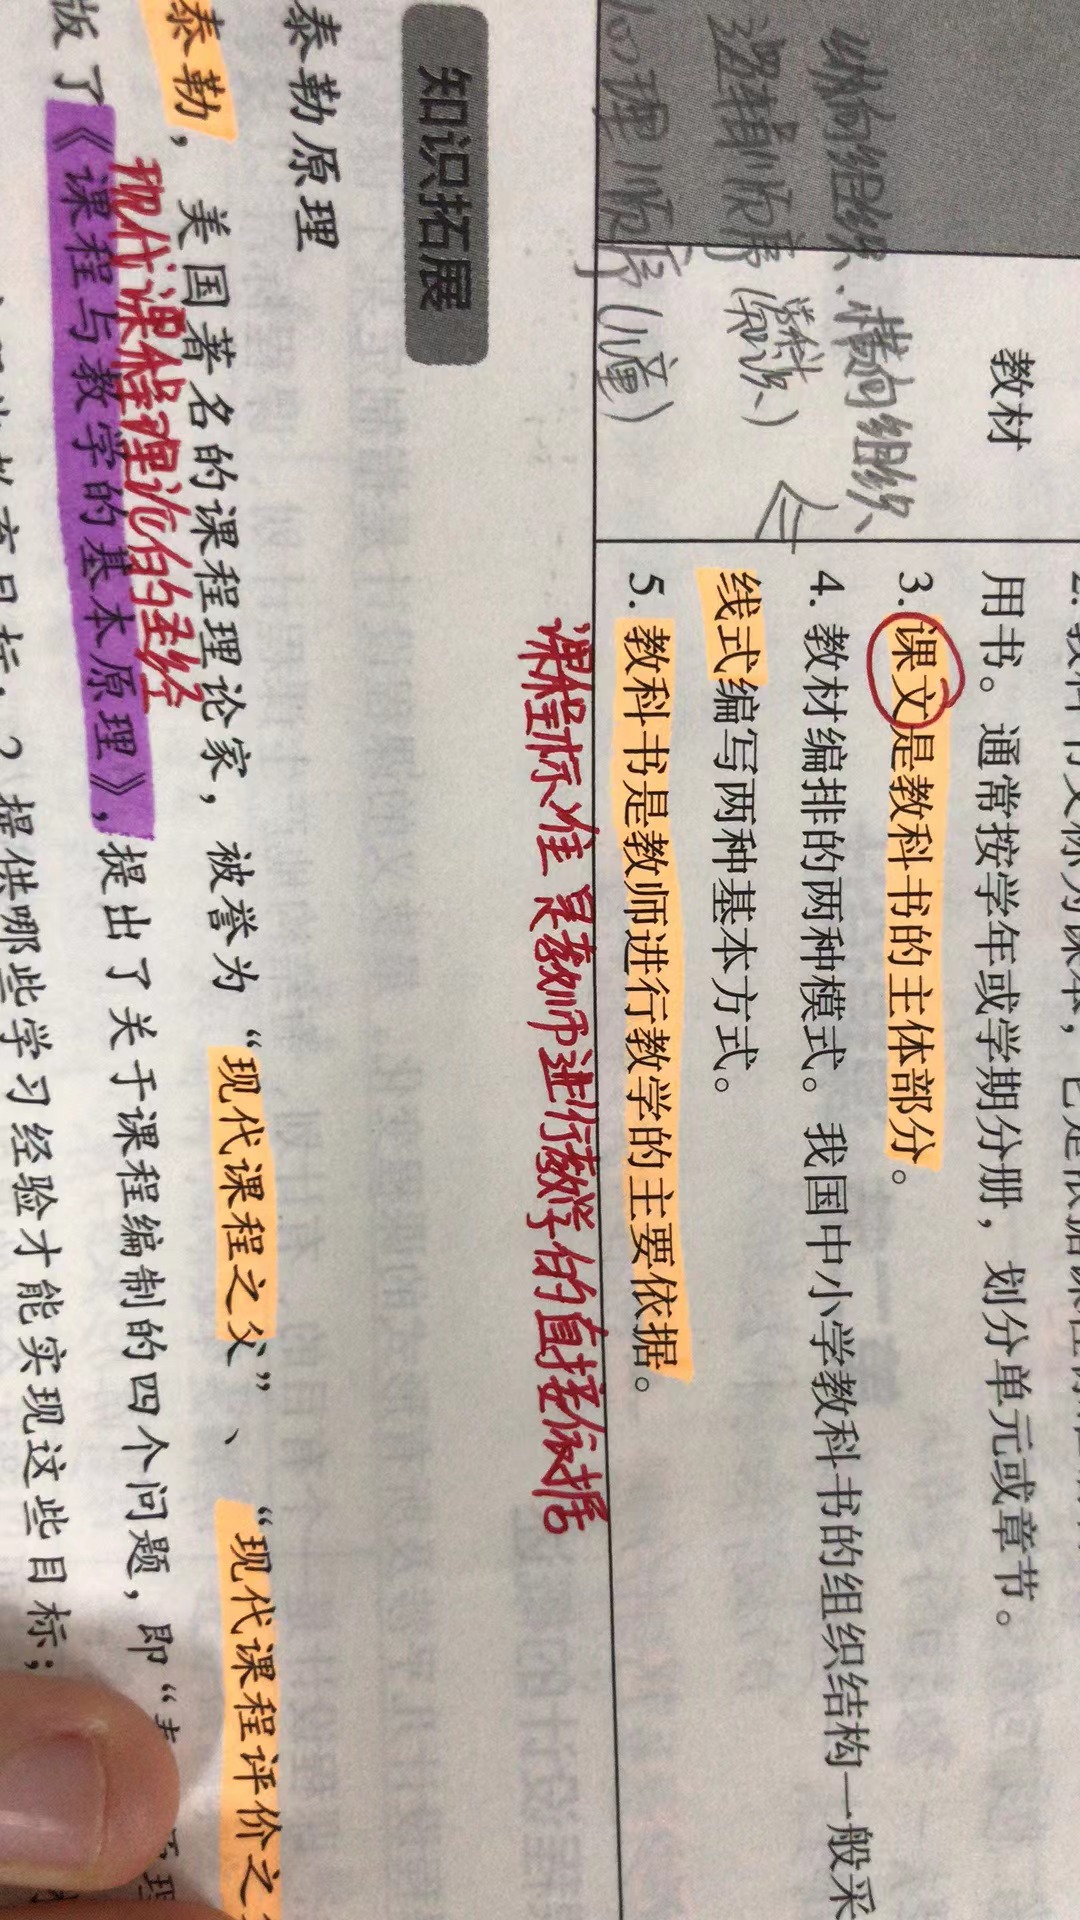 教材
用书。通常按学年或学期分册，划分单元或章节。
3.课文是教科书的主体部分。
4.教材编排的两种模式。我国中小学教科书的组织结构一般采
线式编写两种基本方式。
5.教科书是教师进行教学的主要依据。
纵向组织、横向组织、
逻辑顺序（学科知识）
心理顺序（儿童）
课程标准是教师进行教学的直接依据
知识拓展
泰勒原理
泰勒，美国著名的课程理论家，被誉为“现代课程之父”、“现代课程评价之
现代课程理论的圣经
版了《课程与教学的基本原理》，提出了关于课程编制的四个问题，即“
教育目标；？提供哪些学习经验才能实现这些目标；